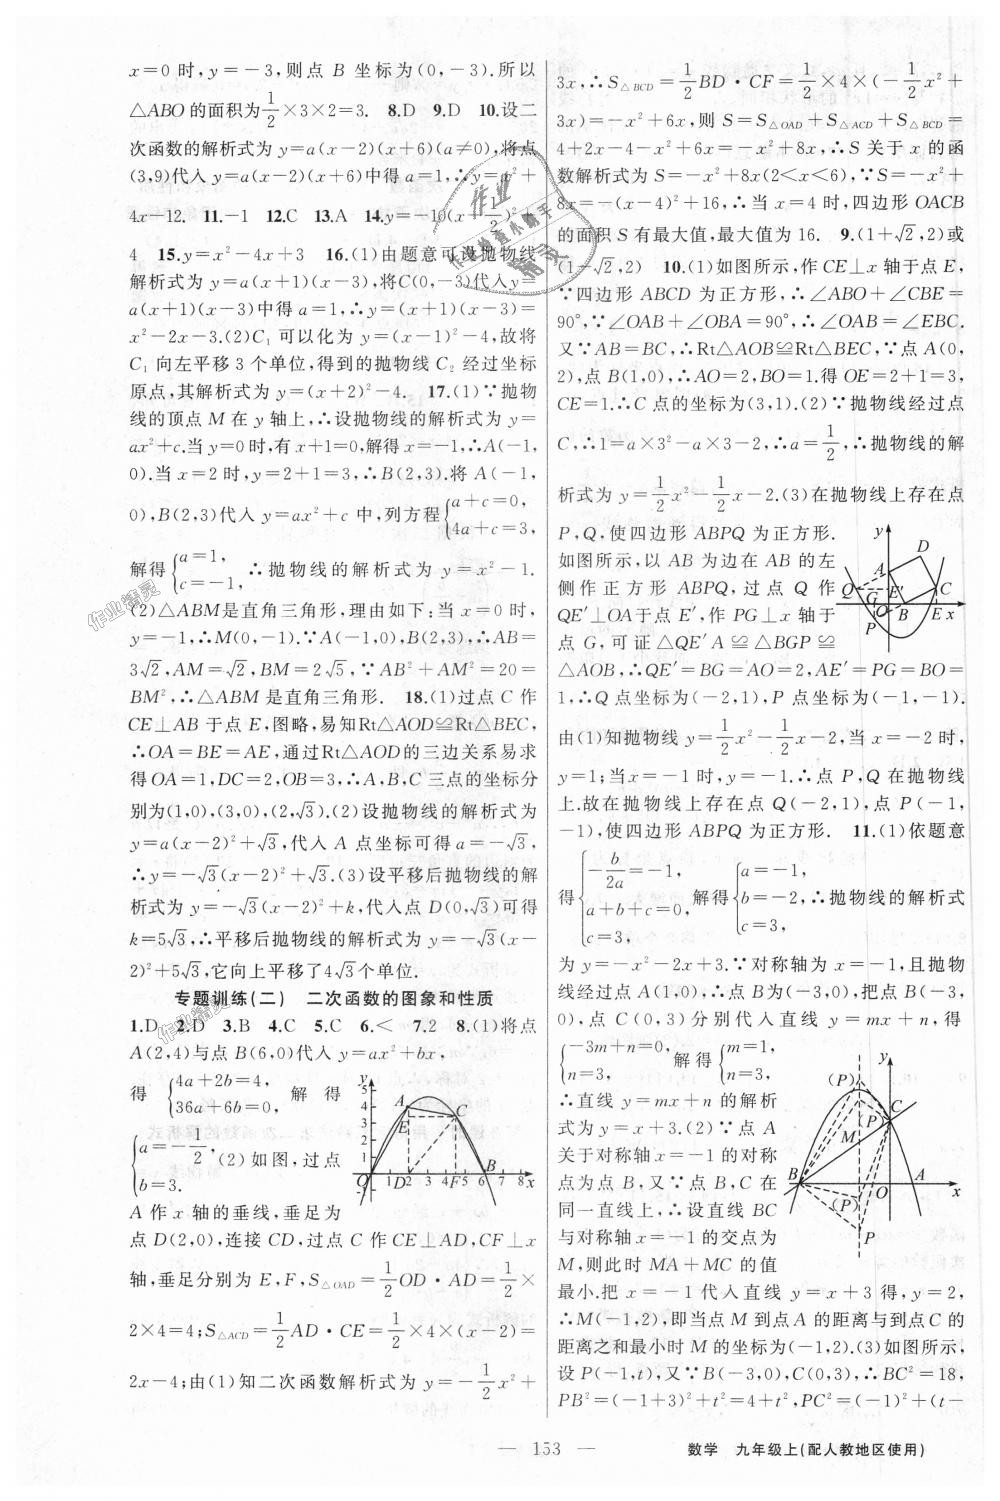 x=0 时,y=-3,则点 B 坐标为(0,-3).所以
△ABO 的面积为1/2×3×2=3. 8.D 9.D 10.设二
次函数的解析式为 y=a(x-2)(x+6)(a≠0),将点
(3,9)代入 y=a(x-2)(x+6)中得 a=1,∴y=x²+
4x-12. 11.-1 12.C 13.A 14.y=-10(x-1/2)²+
4 15.y=x²-4x+3 16.(1)由题意可设抛物线
解析式为 y=a(x+1)(x-3),将C(0,-3)代入y=
a(x+1)(x-3)中得 a=1,∴y=(x+1)(x-3)=
x²-2x-3.(2)C₁ 可以化为 y=(x-1)²-4,故将
C₁ 向左平移 3 个单位,得到的抛物线 C₂ 经过坐标
原点,其解析式为 y=(x+2)²-4. 17.(1)∵抛物
线的顶点 M 在 y 轴上,∴设抛物线的解析式为 y=
ax²+c.当 y=0 时,有 x+1=0,解得 x=-1,∴A(-1,
0).当 x=2 时,y=2+1=3,∴B(2,3).将 A(-1,
0),B(2,3)代入 y=ax²+c 中,列方程{a+c=0, 4a+c=3,
解得{a=1, c=-1, ∴抛物线的解析式为 y=x²-1.
(2)△ABM是直角三角形,理由如下:当 x=0 时,
y=-1,∴M(0,-1).∵A(-1,0),B(2,3),∴AB=
3√2,AM=√2,BM=2√5,∵AB²+AM²=20=
BM²,∴△ABM 是直角三角形. 18.(1)过点 C 作
CE⊥AB 于点 E,图略,易知Rt△AOD≌Rt△BEC,
∴OA=BE=AE,通过Rt△AOD的三边关系易求
得 OA=1,DC=2,OB=3,∴A,B,C 三点的坐标分
别为(1,0),(3,0),(2,√3).(2)设抛物线的解析式为
y=a(x-2)²+√3,代入 A 点坐标可得 a=-√3,
∴y=-√3(x-2)²+√3.(3)设平移后抛物线的解
析式为 y=-√3(x-2)²+k,代入点 D(0,√3)可得
k=5√3,∴平移后抛物线的解析式为 y=-√3(x-
2)²+5√3,它向上平移了4√3个单位.
专题训练(二) 二次函数的图象和性质
1.D 2.D 3.B 4.C 5.C 6.< 7.2 8.(1)将点
A(2,4)与点 B(6,0)代入 y=ax²+bx,
得 {4a+2b=4, 36a+6b=0, 解 得
{a=-1/2, b=3. (2)如图,过点
A 作 x 轴的垂线,垂足为
点 D(2,0),连接 CD,过点 C 作 CE⊥AD,CF⊥x
轴,垂足分别为 E,F,S△OAD=1/2OD·AD=1/2×
2×4=4;S△ACD=1/2AD·CE=1/2×4×(x-2)=
2x-4;由(1)知二次函数解析式为 y=-1/2x²+
y
5
4
3
2
1
A
E
C
O
1 D2 3 4 F5 6 7 8 x
B
3x,∴S△BCD=1/2BD·CF=1/2×4×(-1/2x²+
3x)=-x²+6x,则 S=S△OAD+S△ACD+S△BCD=
4+2x-4-x²+6x=-x²+8x,∴S 关于 x 的函
数解析式为 S=-x²+8x(2<x<6),∵S=-x²+
8x=-(x-4)²+16,∴当 x=4 时,四边形 OACB
的面积 S 有最大值,最大值为 16. 9.(1+√2,2)或
(1-√2,2) 10.(1)如图所示,作 CE⊥x 轴于点 E,
∵四边形 ABCD 为正方形,∴∠ABO+∠CBE=
90°,∵∠OAB+∠OBA=90°,∴∠OAB=∠EBC.
又∵AB=BC,∴Rt△AOB≌Rt△BEC,∵点 A(0,
2),点 B(1,0),∴AO=2,BO=1.得 OE=2+1=3,
CE=1.∴C 点的坐标为(3,1).(2)∵抛物线经过点
C,∴1=a×3²-a×3-2,∴a=1/2,∴抛物线的解
析式为 y=1/2x²-1/2x-2.(3)在抛物线上存在点
P,Q,使四边形 ABPQ 为正方形.
如图所示,以 AB 为边在 AB 的左
侧作正方形 ABPQ,过点 Q 作
QE′⊥OA于点 E′,作 PG⊥x 轴于
点 G,可证△QE′A≌△BGP≌
△AOB,∴QE′=BG=AO=2,AE′=PG=BO=
1,∴Q 点坐标为(-2,1),P 点坐标为(-1,-1).
由(1)知抛物线 y=1/2x²-1/2x-2,当 x=-2 时,
y=1;当 x=-1 时,y=-1.∴点 P,Q 在抛物线
上.故在抛物线上存在点 Q(-2,1),点 P(-1,
-1),使四边形 ABPQ 为正方形. 11.(1)依题意
y
D
A
Q
E′
C
G
O
B
E x
P
得{-b/2a=-1, a+b+c=0, c=3, 解得{a=-1, b=-2, c=3, ∴抛物线的解析式
为 y=-x²-2x+3.∵对称轴为 x=-1,且抛物
线经过点 A(1,0),∴点 B 为(-3,0),把点 B(-3,
0),点 C(0,3)分别代入直线 y=mx+n,得
{-3m+n=0, n=3, 解得{m=1, n=3,
∴直线 y=mx+n 的解析
式为 y=x+3.(2)∵点 A
关于对称轴 x=-1 的对称
点为点 B,又∵点 B,C 在
同一直线上,∴设直线 BC
与对称轴 x=-1 的交点为
M,则此时 MA+MC 的值
最小.把 x=-1 代入直线 y=x+3 得,y=2,
∴M(-1,2),即当点 M 到点 A 的距离与到点 C 的
距离之和最小时 M 的坐标为(-1,2).(3)如图所示,
设 P(-1,t),又∵B(-3,0),C(0,3),∴BC²=18,
PB²=(-1+3)²+t²=4+t²,PC²=(-1)²+(t-
y
(P)
C
(P)
M
B
(P)
O
A
x
P
— 153 — 数学 九年级上(配人教地区使用)
作业
作业检查小助手
精灵
作业精灵
作业精灵